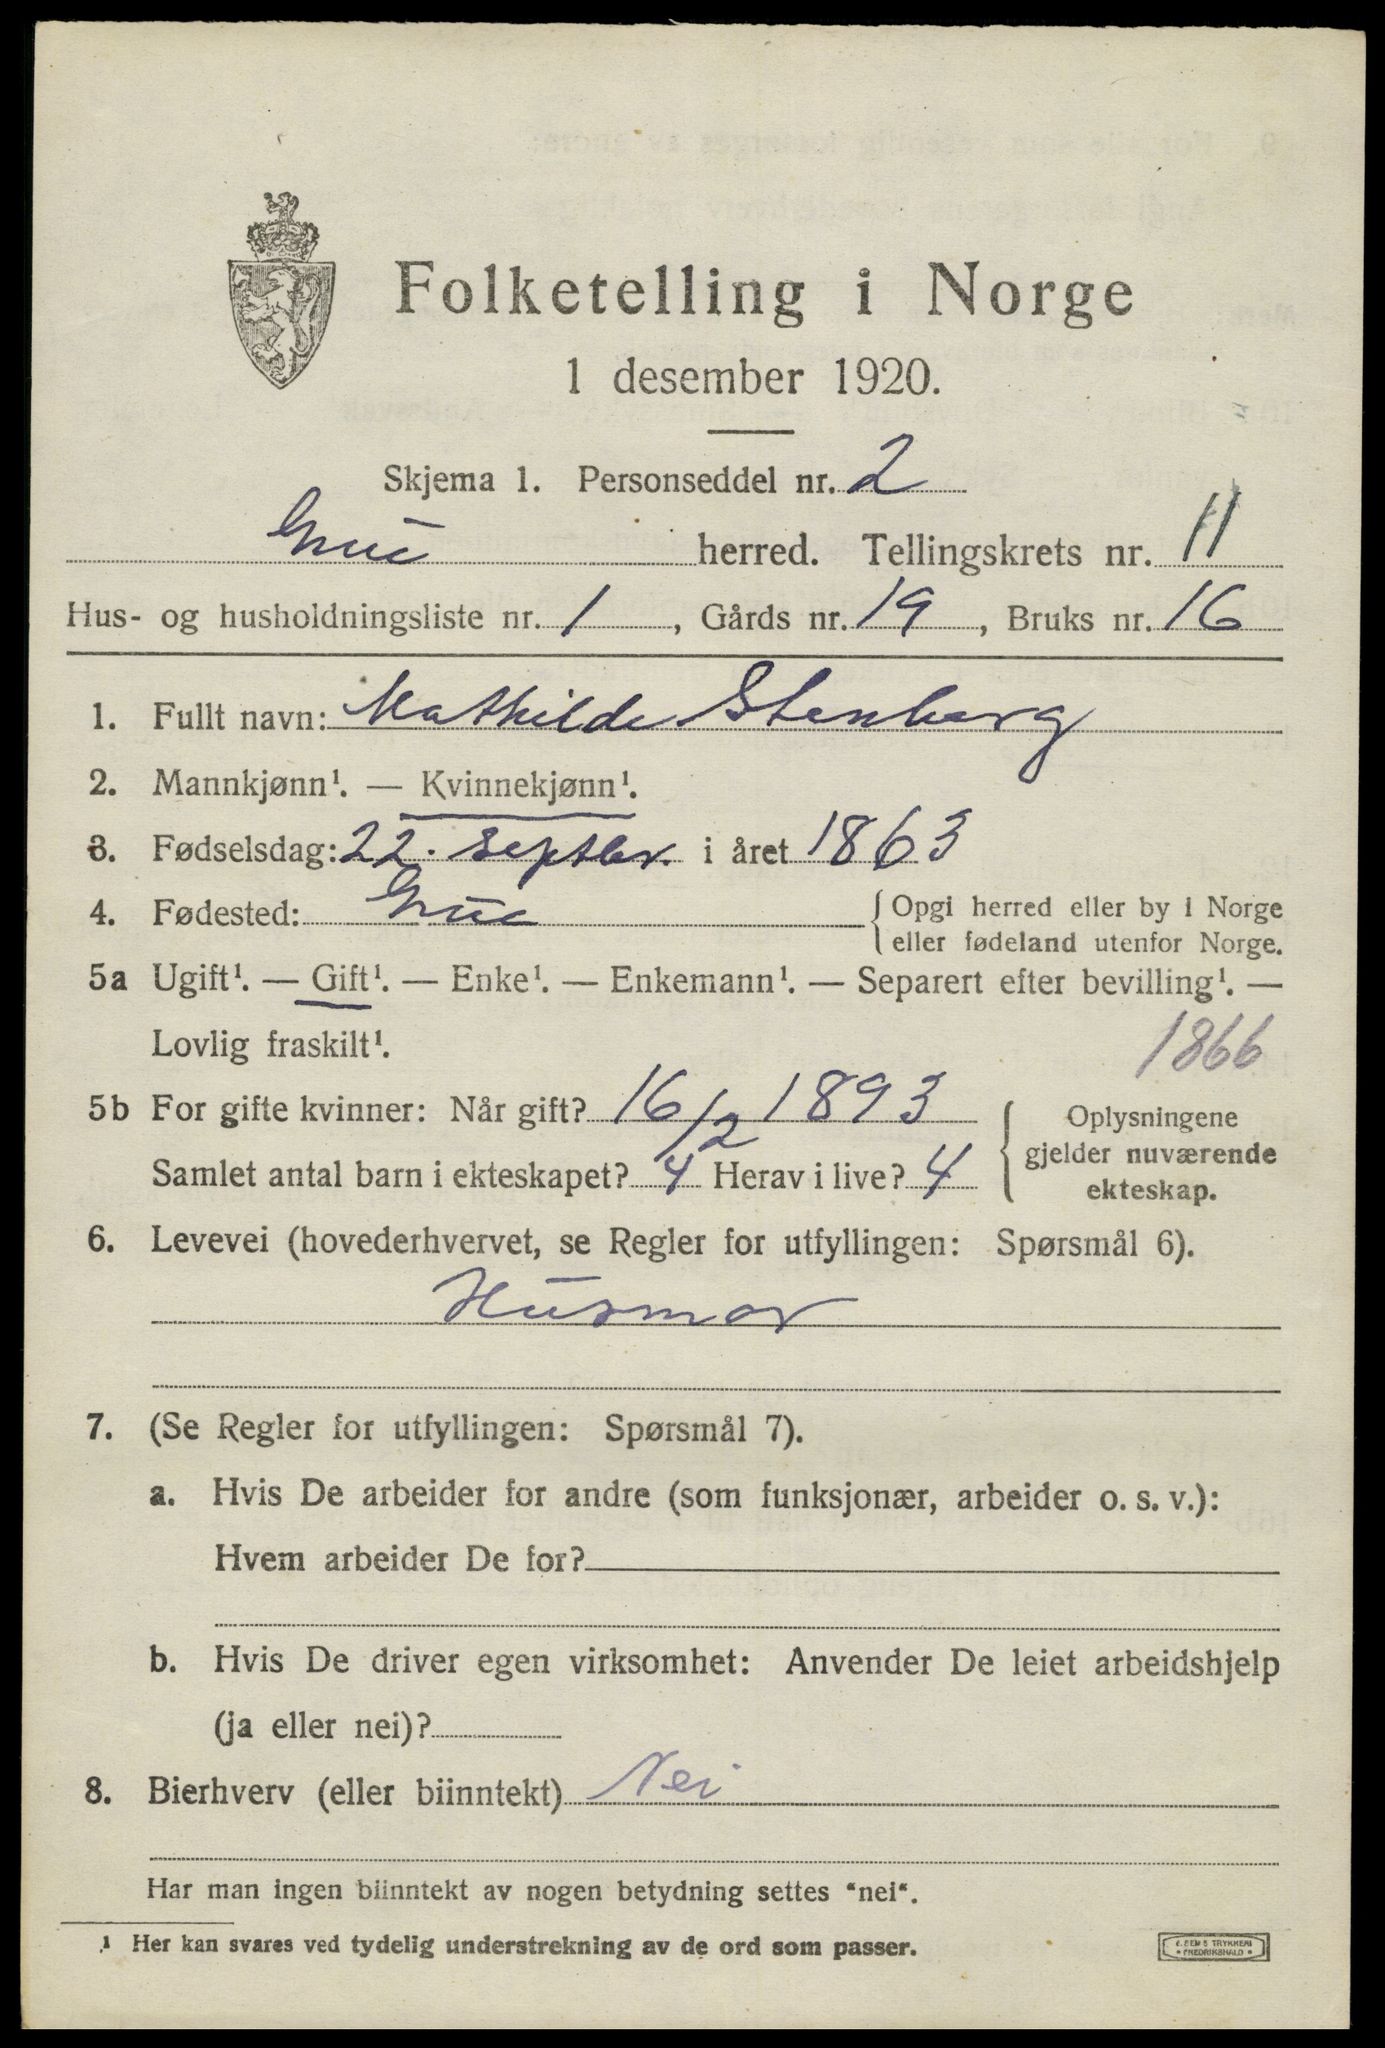 Folketelling i Norge
1 desember 1920.
Skjema 1. Personseddel nr. 2
Grue herred. Tellingskrets nr. 11
Hus- og husholdningsliste nr. 1, Gårds nr. 19, Bruks nr. 16
1. Fullt navn: Mathilde Stenberg
2. Mannkjønn¹. — Kvinnekjønn¹.
3. Fødselsdag: 22. septbr. i året 1863
4. Fødested: Grue {Opgi herred eller by i Norge
eller fødeland utenfor Norge.
5a Ugift¹. — Gift¹. — Enke¹. — Enkemann¹. — Separert efter bevilling¹. —
Lovlig fraskilt¹.
1866
5b For gifte kvinner: Når gift? 16/2 1893
Samlet antal barn i ekteskapet? 4 Herav i live? 4
{Oplysningene
gjelder nuværende
ekteskap.
6. Levevei (hovederhvervet, se Regler for utfyllingen: Spørsmål 6).
Husmor
7. (Se Regler for utfyllingen: Spørsmål 7).
a. Hvis De arbeider for andre (som funksjonær, arbeider o. s. v.):
Hvem arbeider De for?
b. Hvis De driver egen virksomhet: Anvender De leiet arbeidshjelp
(ja eller nei)?
8. Bierhverv (eller biinntekt) Nei
Har man ingen biinntekt av nogen betydning settes “nei“.
¹ Her kan svares ved tydelig understrekning av de ord som passer.
TRYKKERI
• FREDRIKSHALD •